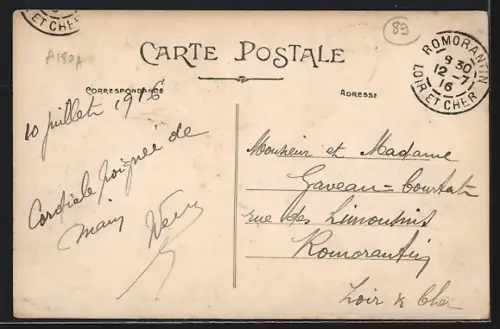 ET CHER
A180A
89
CARTE POSTALE
CORRESPONDANCE
ADRESSE
ROMORANTIN
9 30
12 -7
16
LOIR ET CHER
10 juillet 1916
Cordiale poignée de
main
Monsieur et Madame
Gaveau=Courtat
rue des Limousins
Romorantin
Loir & Cher